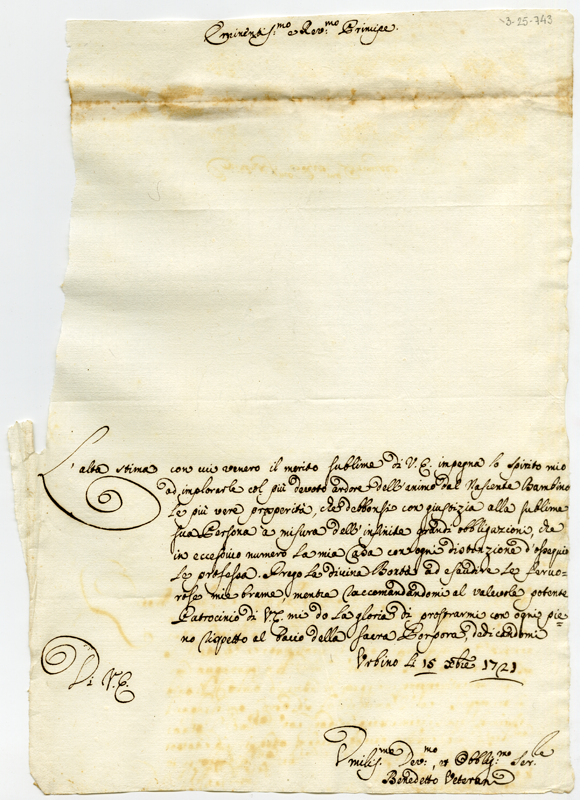 3-25-743
Eminentis.mo e Rev.mo Principe.
L'alta stima con cui venero il merito sublime di V.E. impegna lo spirito mio
ad implorarle col più devoto ardore dell'animo dal Nascente Bambino
le più vere prosperità, che debbonsi con giustizia alla sublime
sua Persona a misura dell'infinite grandi obbligazioni, che
in eccessivo numero la mia Casa con ogni distinzione d'osequio
le professa. Prego la divina Bontà ad esaudire le feruo=
rose mie brame, mentre raccomandandomi al valevole potente
Patrocinio di V.E. mi do la gloria di prostrarmi con ogni pie=
no rispetto al bacio della sacra Porpora, dedicandomi
Urbino li 15 Xbre 1721
Di V.E.
Umilis.me Dev.mo, et Obblig.mo Ser.le
Benedetto Veterani